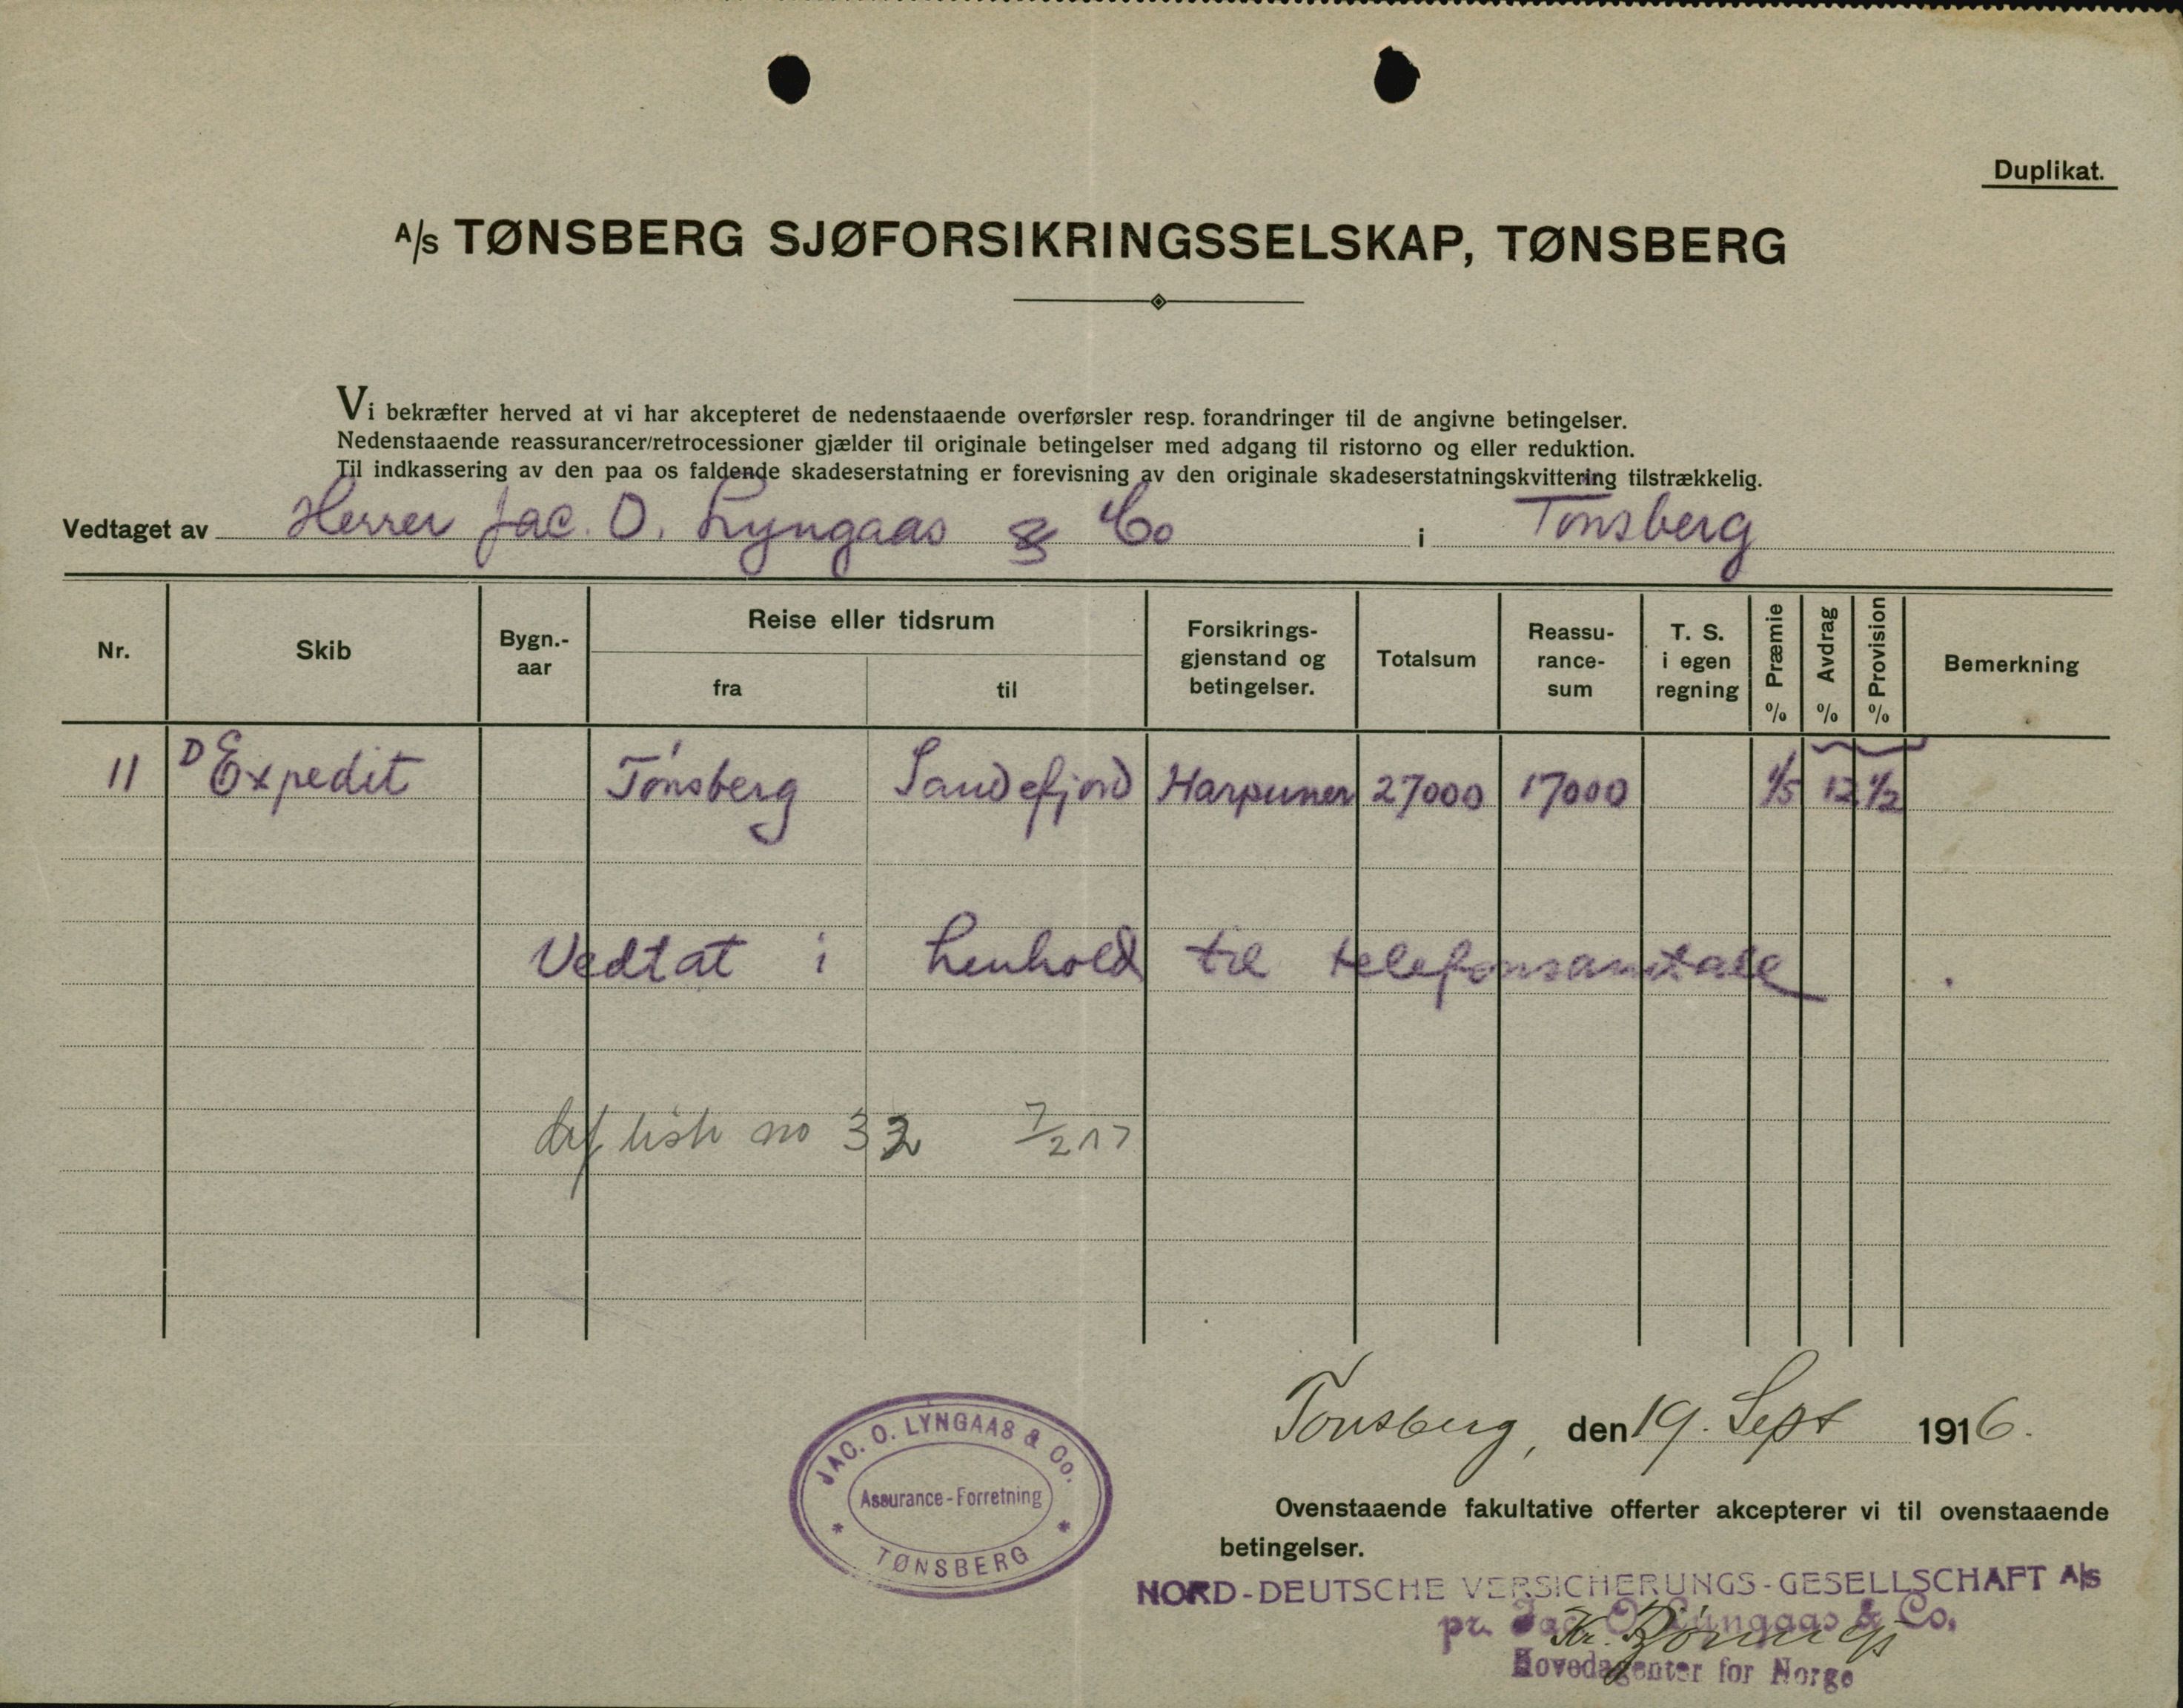 Duplikat.
A/S TØNSBERG SJØFORSIKRINGSSELSKAP, TØNSBERG
Vi bekræfter herved at vi har akcepteret de nedenstaaende overførsler resp. forandringer til de angivne betingelser.
Nedenstaaende reassurancer/retrocessioner gjælder til originale betingelser med adgang til ristorno og eller reduktion.
Til indkassering av den paa os faldende skadeserstatning er forevisning av den originale skadeserstatningskvittering tilstrækkelig.
Vedtaget av Herrer Jac. O. Lyngaas & Co i Tønsberg
Nr. Skib Bygn.-aar Reise eller tidsrum fra til Forsikrings-gjenstand og betingelser. Totalsum Reassu-rance-sum T. S. i egen regning Præmie % Avdrag % Provision % Bemerkning
11 D Expedit Tønsberg Sandefjord Harpuner 27000 17000 1/5 12 1/2
Vedtat i henhold til telefonsamtale
def liste no 32 7/2 17
Tønsberg, den 19. Sept 1916.
JAC. O. LYNGAAS & Co.
Assurance-Forretning
* TØNSBERG *
Ovenstaaende fakultative offerter akcepterer vi til ovenstaaende
betingelser.
NORD-DEUTSCHE VERSICHERUNGS-GESELLSCHAFT A/S
pr. Jac. O. Lyngaas & Co.
Hovedagenter for Norge